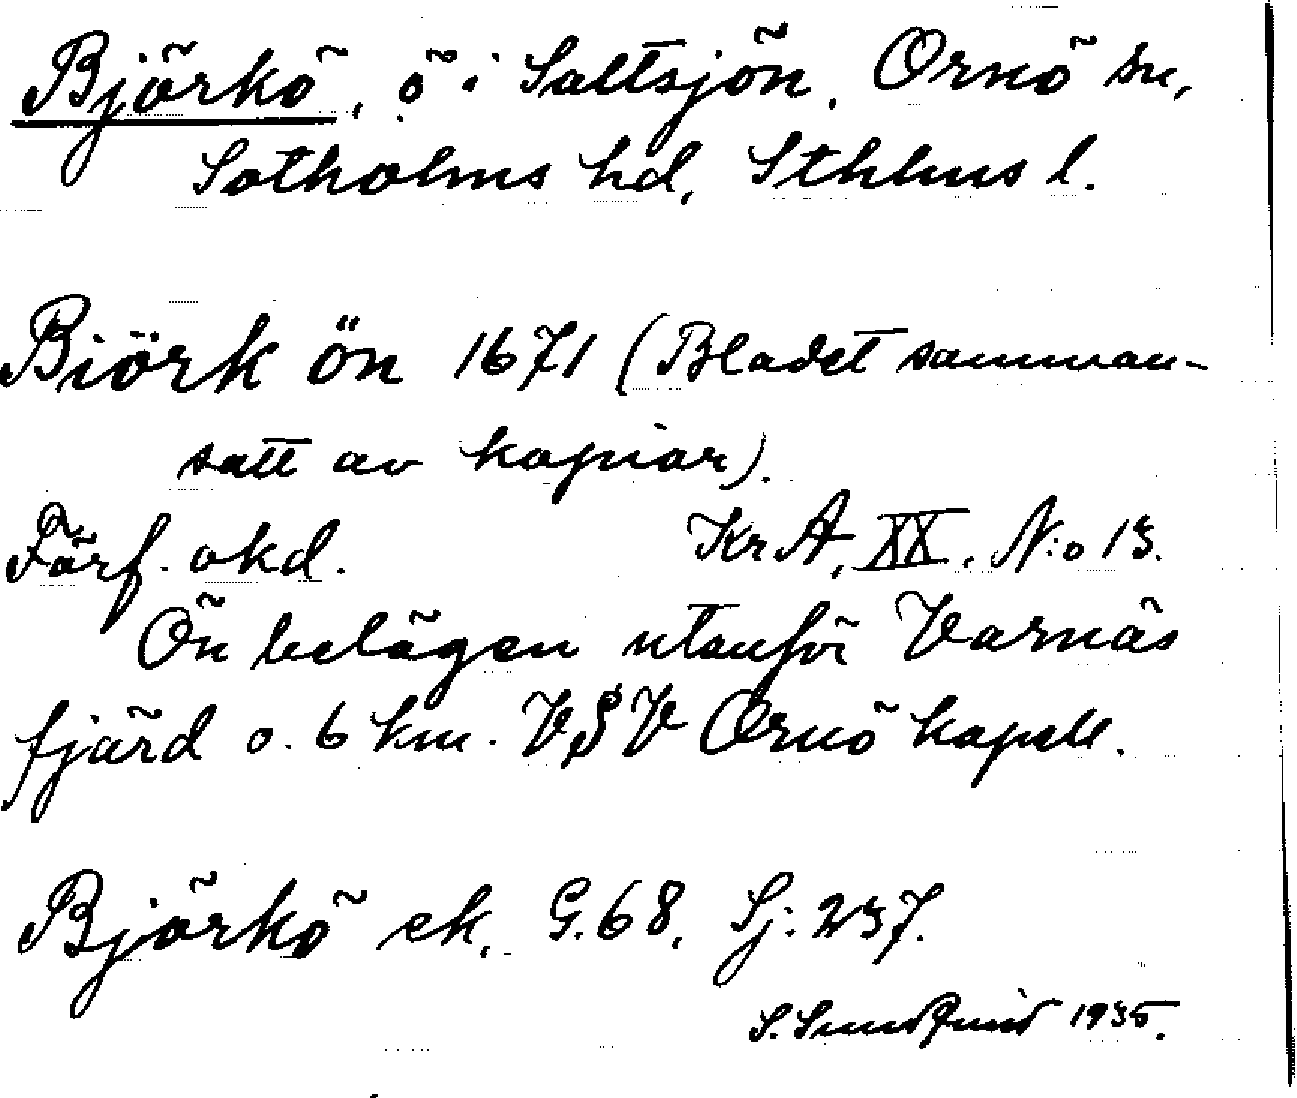 Björkö, ö i Saltsjön, Ornö sn,
Sotholms hd, Sthlms l.
Biörk ön 1671 (Bladet samman-
satt av kopior).
Förf. okd. Kr.A, XX. N:o 13.
Ön belägen utanför Varnäs
fjärd o. 6 km. VSV Ornö kapell.
Björkö ek. G.68, Sj: 237.
S. Sundquist 1935.